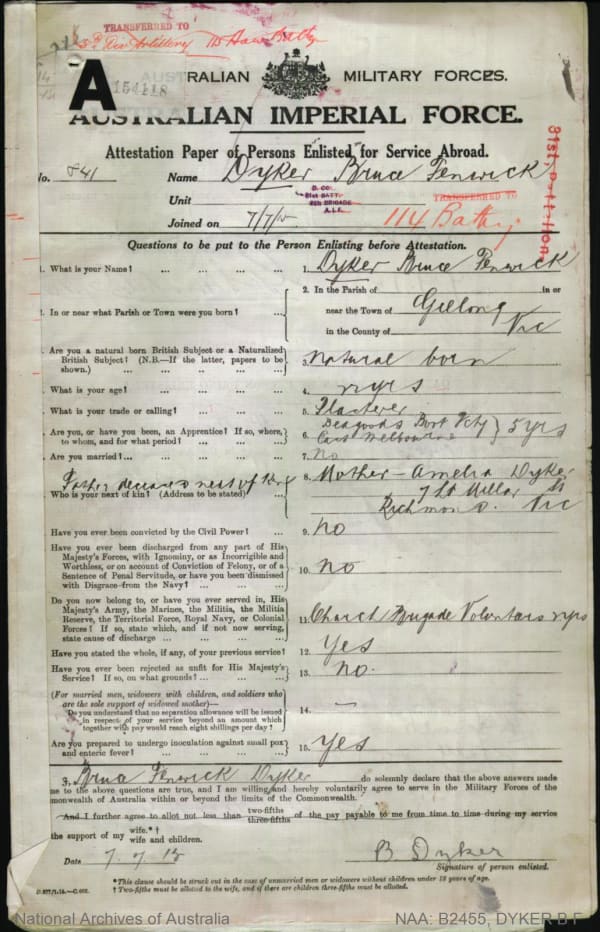 TRANSFERRED TO
5th Div Artillery 115 How Batty
A
154118
RALIAN MILITARY FORCES.
AUSTRALIAN IMPERIAL FORCE.
Attestation Paper of Persons Enlisted for Service Abroad.
No. 841 Name Dyker Bruce Fenwick
Unit D. CO. 31st BATT. 8th BRIGADE A.I.F. TRANSFERRED TO
31st Battalion
Joined on 7/7/15 114 Batty
Questions to be put to the Person Enlisting before Attestation.
1. What is your Name? ... ... ... ... 1. Dyker Bruce Fenwick
2. In or near what Parish or Town were you born? ... 2. In the Parish of in or
near the Town of Geelong
in the County of Vic
3. Are you a natural born British Subject or a Naturalized
British Subject? (N.B.—If the latter, papers to be
shown.) ... ... ... ... 3. natural born
What is your age? ... ... ... ... 4. yrs
What is your trade or calling? ... ... ... 5.
Are you, or have you been, an Apprentice? If so, where,
to whom, and for what period? ... ... ... 6. Boot Fcty 5 yrs
East Melbourne
Are you married? ... ... ... ... 7. No
Father deceased next of kin
Who is your next of kin? (Address to be stated) ... 8. Mother - Amelia Dyker
7 Lt Millar St
Richmond. Vic
Have you ever been convicted by the Civil Power? ... 9. no
Have you ever been discharged from any part of His
Majesty's Forces, with Ignominy, or as Incorrigible and
Worthless, or on account of Conviction of Felony, or of a
Sentence of Penal Servitude, or have you been dismissed
with Disgrace from the Navy? ... ... ... 10. no
Do you now belong to, or have you ever served in, His
Majesty's Army, the Marines, the Militia, the Militia
Reserve, the Territorial Force, Royal Navy, or Colonial
Forces? If so, state which, and if not now serving,
state cause of discharge ... ... ... 11. Church Brigade Volunteers yrs
Have you stated the whole, if any, of your previous service? 12. Yes
Have you ever been rejected as unfit for His Majesty's
Service? If so, on what grounds? ... ... 13. no.
(For married men, widowers with children, and soldiers who
are the sole support of widowed mother)—
Do you understand that no separation allowance will be issued
in respect of your service beyond an amount which
together with pay would reach eight shillings per day? 14. —
Are you prepared to undergo inoculation against small pox
and enteric fever? ... ... ... ... 15. yes
I, Bruce Fenwick Dyker do solemnly declare that the above answers made
me to the above questions are true, and I am willing and hereby voluntarily agree to serve in the Military Forces of the
monwealth of Australia within or beyond the limits of the Commonwealth.
*And I further agree to allot not less than two-fifths three-fifths of the pay payable to me from time to time during my service
the support of my wife.*† wife and children.
Date 7.7.15 B Dyker
Signature of person enlisted.
*This clause should be struck out in the case of unmarried men or widowers without children under 18 years of age.
† Two-fifths must be allotted to the wife, and if there are children three-fifths must be allotted.
National Archives of Australia NAA: B2455, DYKER B F